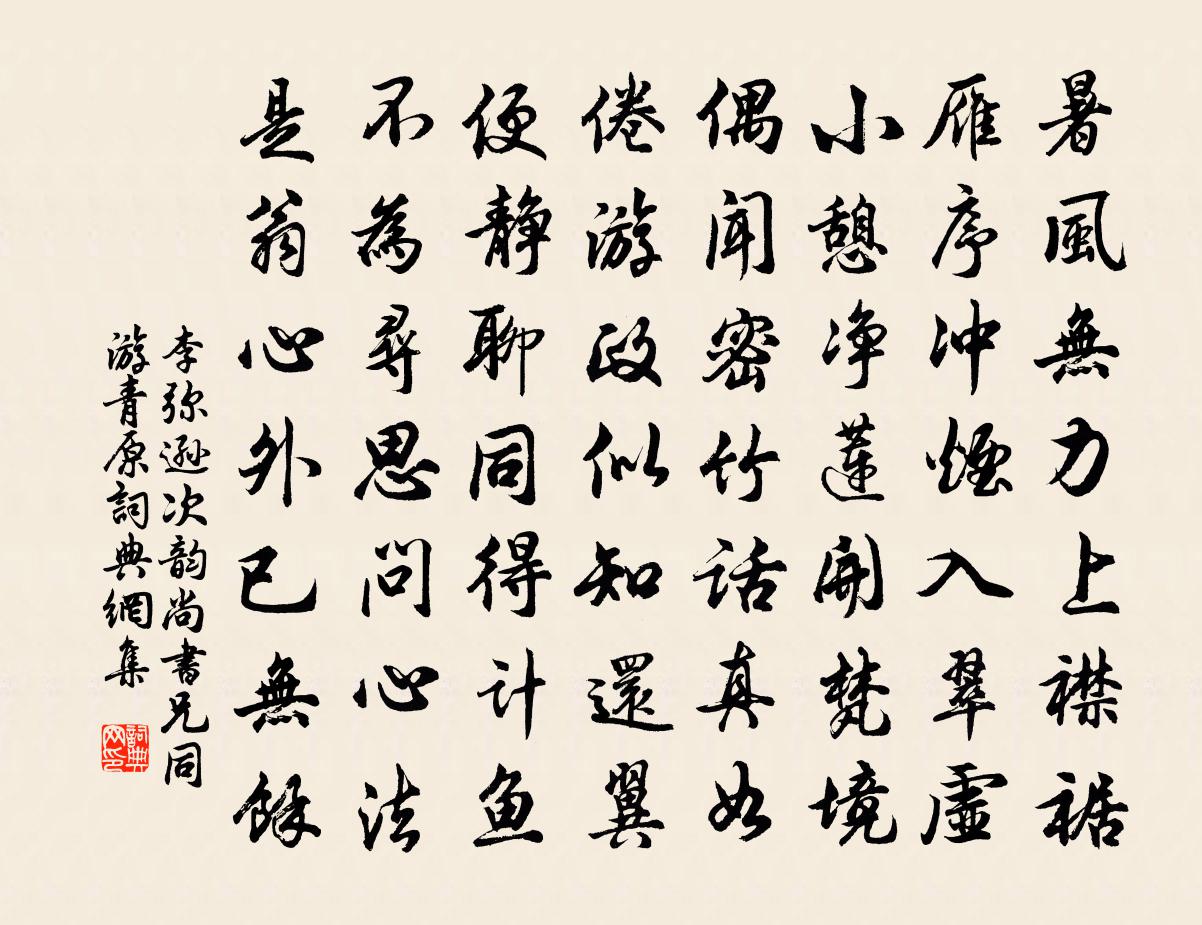 暑風無力上襟裾
雁序冲煙入翠虛
小憩净蓮開梵境
偶聞密竹話真如
倦游政似知還翼
便静聊同得计鱼
不為尋思问心法
是翁心外已無餘
李弥遜次韵尚書兄同
游青原詞典網集
詞典网印